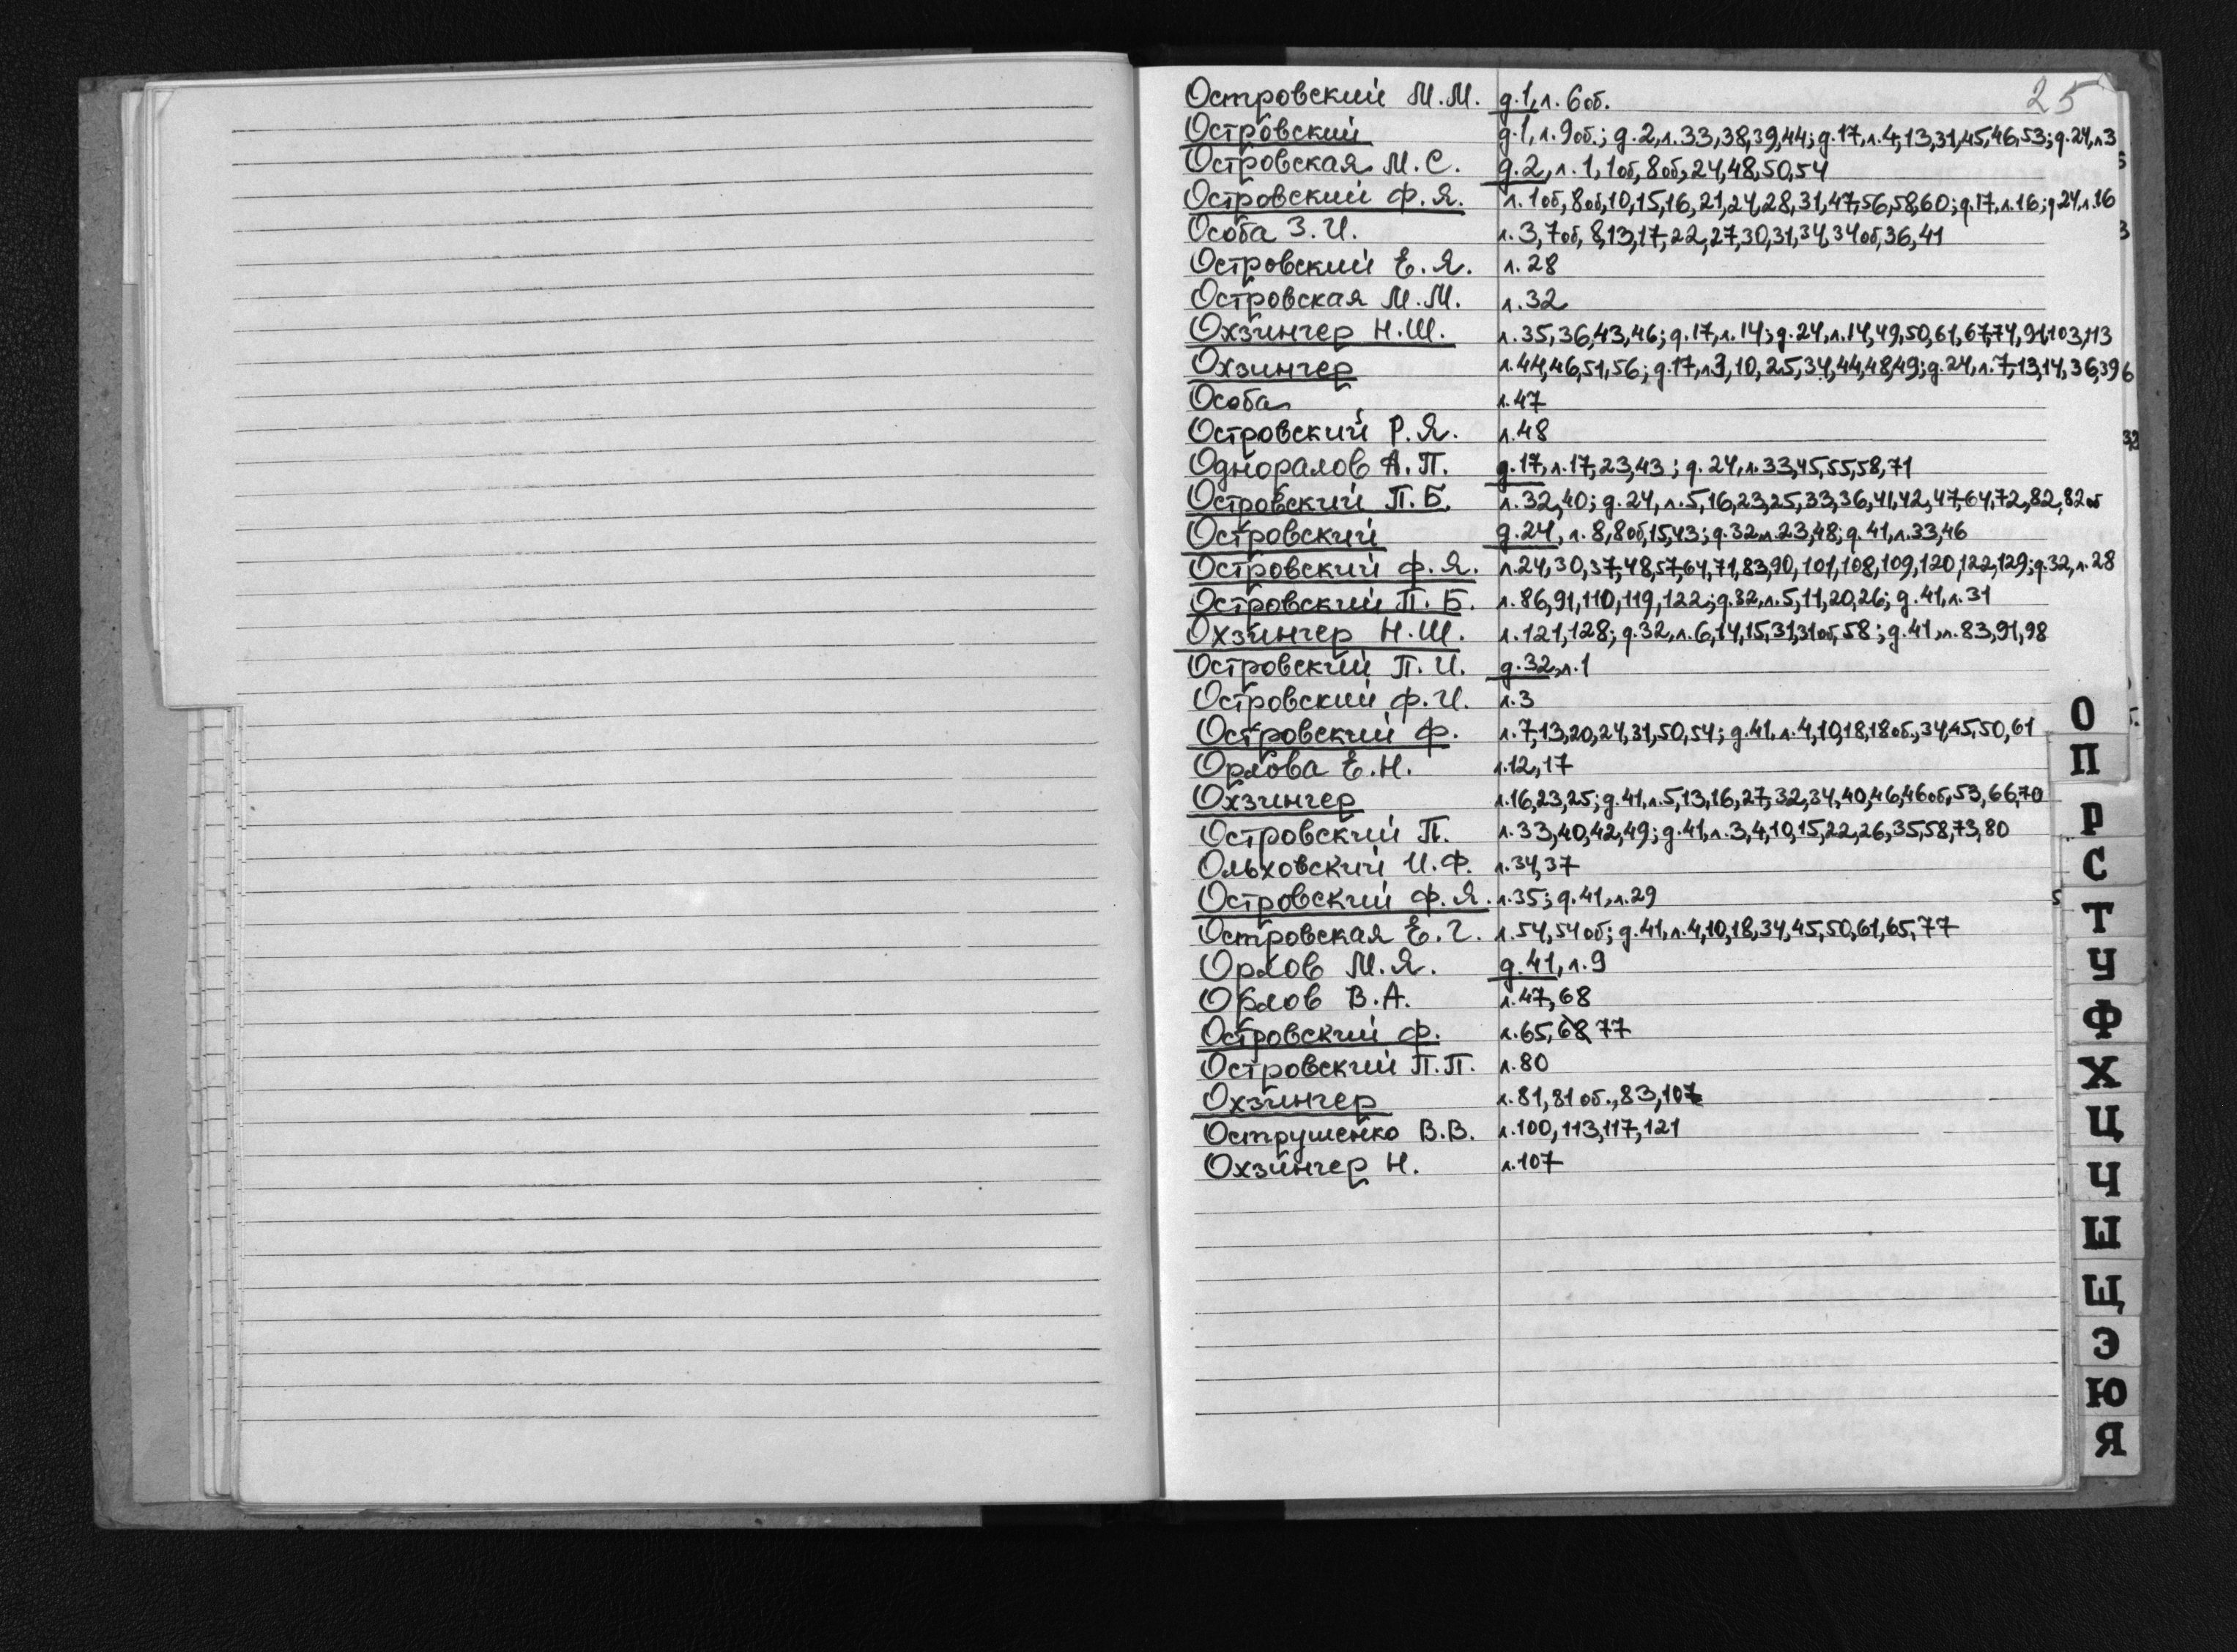 25
Островский М.М. д.1, л. 6об.
Островский д.1, л.9об.; д.2, л.33,38,39,44; д.17, л.4,13,31,45,46,53; д.24, л3
Островская М.С. д.2, л.1,1об,8об,24,48,50,54
Островский Ф.Я. л.1об,8об,10,15,16,21,24,28,31,47,56,58,60; д.17, л.16; д24, л.16
Особа З.И. л.3,7об,8,13,17,22,27,30,31,34,34об,36,41
Островский Е.Я. л.28
Островская М.М. л.32
Охзингер Н.Ш. л.35,36,43,46; д.17, л.14; д.24, л.14,49,50,61,67,74,91,103,113
Охзингер л.44,46,51,56; д.17, л.3,10,25,34,44,48,49; д.24, л.7,13,14,36,39
Особа л.47
Островский Р.Я. л.48
Одноралов А.П. д.17, л.17,23,43; д.24, л.33,45,55,58,71
Островский П.Б. л.32,40; д.24, л.5,16,23,25,33,36,41,42,47,64,72,82,82об
Островский д.24, л.8,8об,15,43; д.32, л.23,48; д.41, л.33,46
Островский Ф.Я. л.24,30,37,48,57,64,71,83,90,101,108,109,120,122,129; д.32, л.28
Островский П.Б. л.86,91,110,119,122; д.32, л.5,11,20,26; д.41, л.31
Охзингер Н.Ш. л.121,128; д.32, л.6,14,15,31,31об,58; д.41, л.83,91,98
Островский П.И. д.32, л.1
Островский Ф.И. л.3
Островский Ф. л.7,13,20,24,31,50,54; д.41, л.4,10,18,18об.,34,45,50,61
Орлова Е.Н. л.12,17
Охзингер л.16,23,25; д.41, л.5,13,16,27,32,34,40,46,46об,53,66,70
Островский П. л.33,40,42,49; д.41, л.3,4,10,15,22,26,35,58,73,80
Ольховский И.Ф. л.34,37
Островский Ф.Я. л.35; д.41, л.29
Островская Е.Г. л.54,54об; д.41, л.4,10,18,34,45,50,61,65,77
Орлов М.Я. д.41, л.9
Орлов В.А. л.47,68
Островский Ф. л.65,68,77
Островский П.П. л.80
Охзингер л.81,81об.,83,107
Острушенко В.В. л.100,113,117,121
Охзингер Н. л.107
О
П
Р
С
Т
У
Ф
Х
Ц
Ч
Ш
Щ
Э
Ю
Я